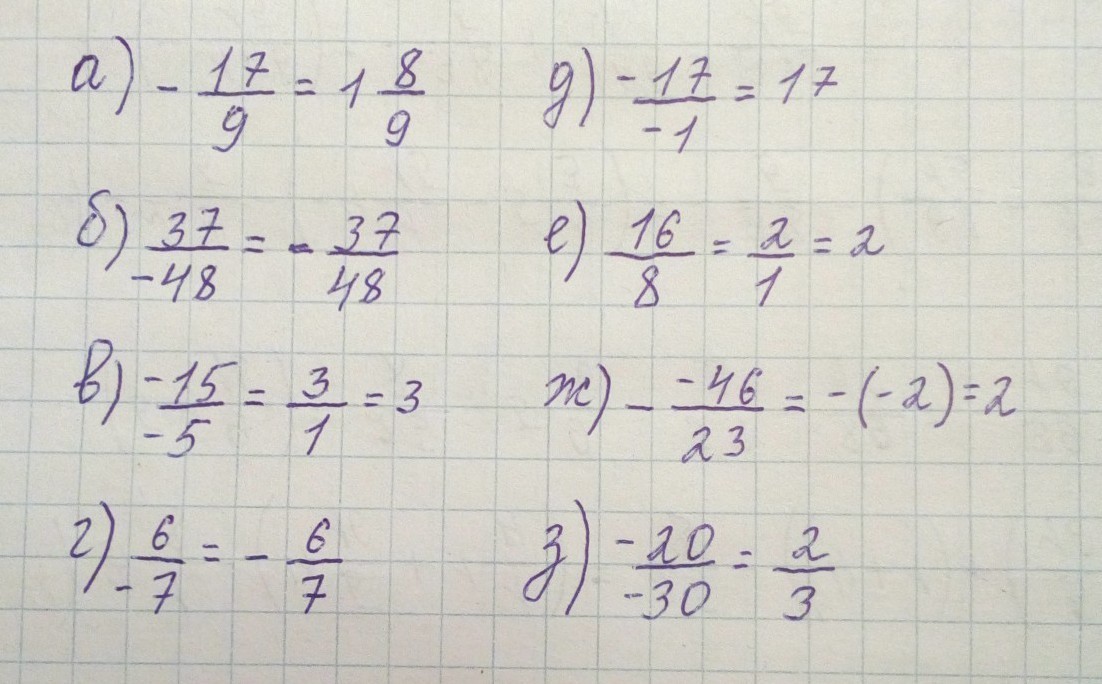 а) - 17/9 = 1 8/9
б) 37/-48 = - 37/48
в) -15/-5 = 3/1 = 3
г) 6/-7 = - 6/7
д) -17/-1 = 17
е) 16/8 = 2/1 = 2
ж) - -46/23 = -(-2) = 2
з) -20/-30 = 2/3